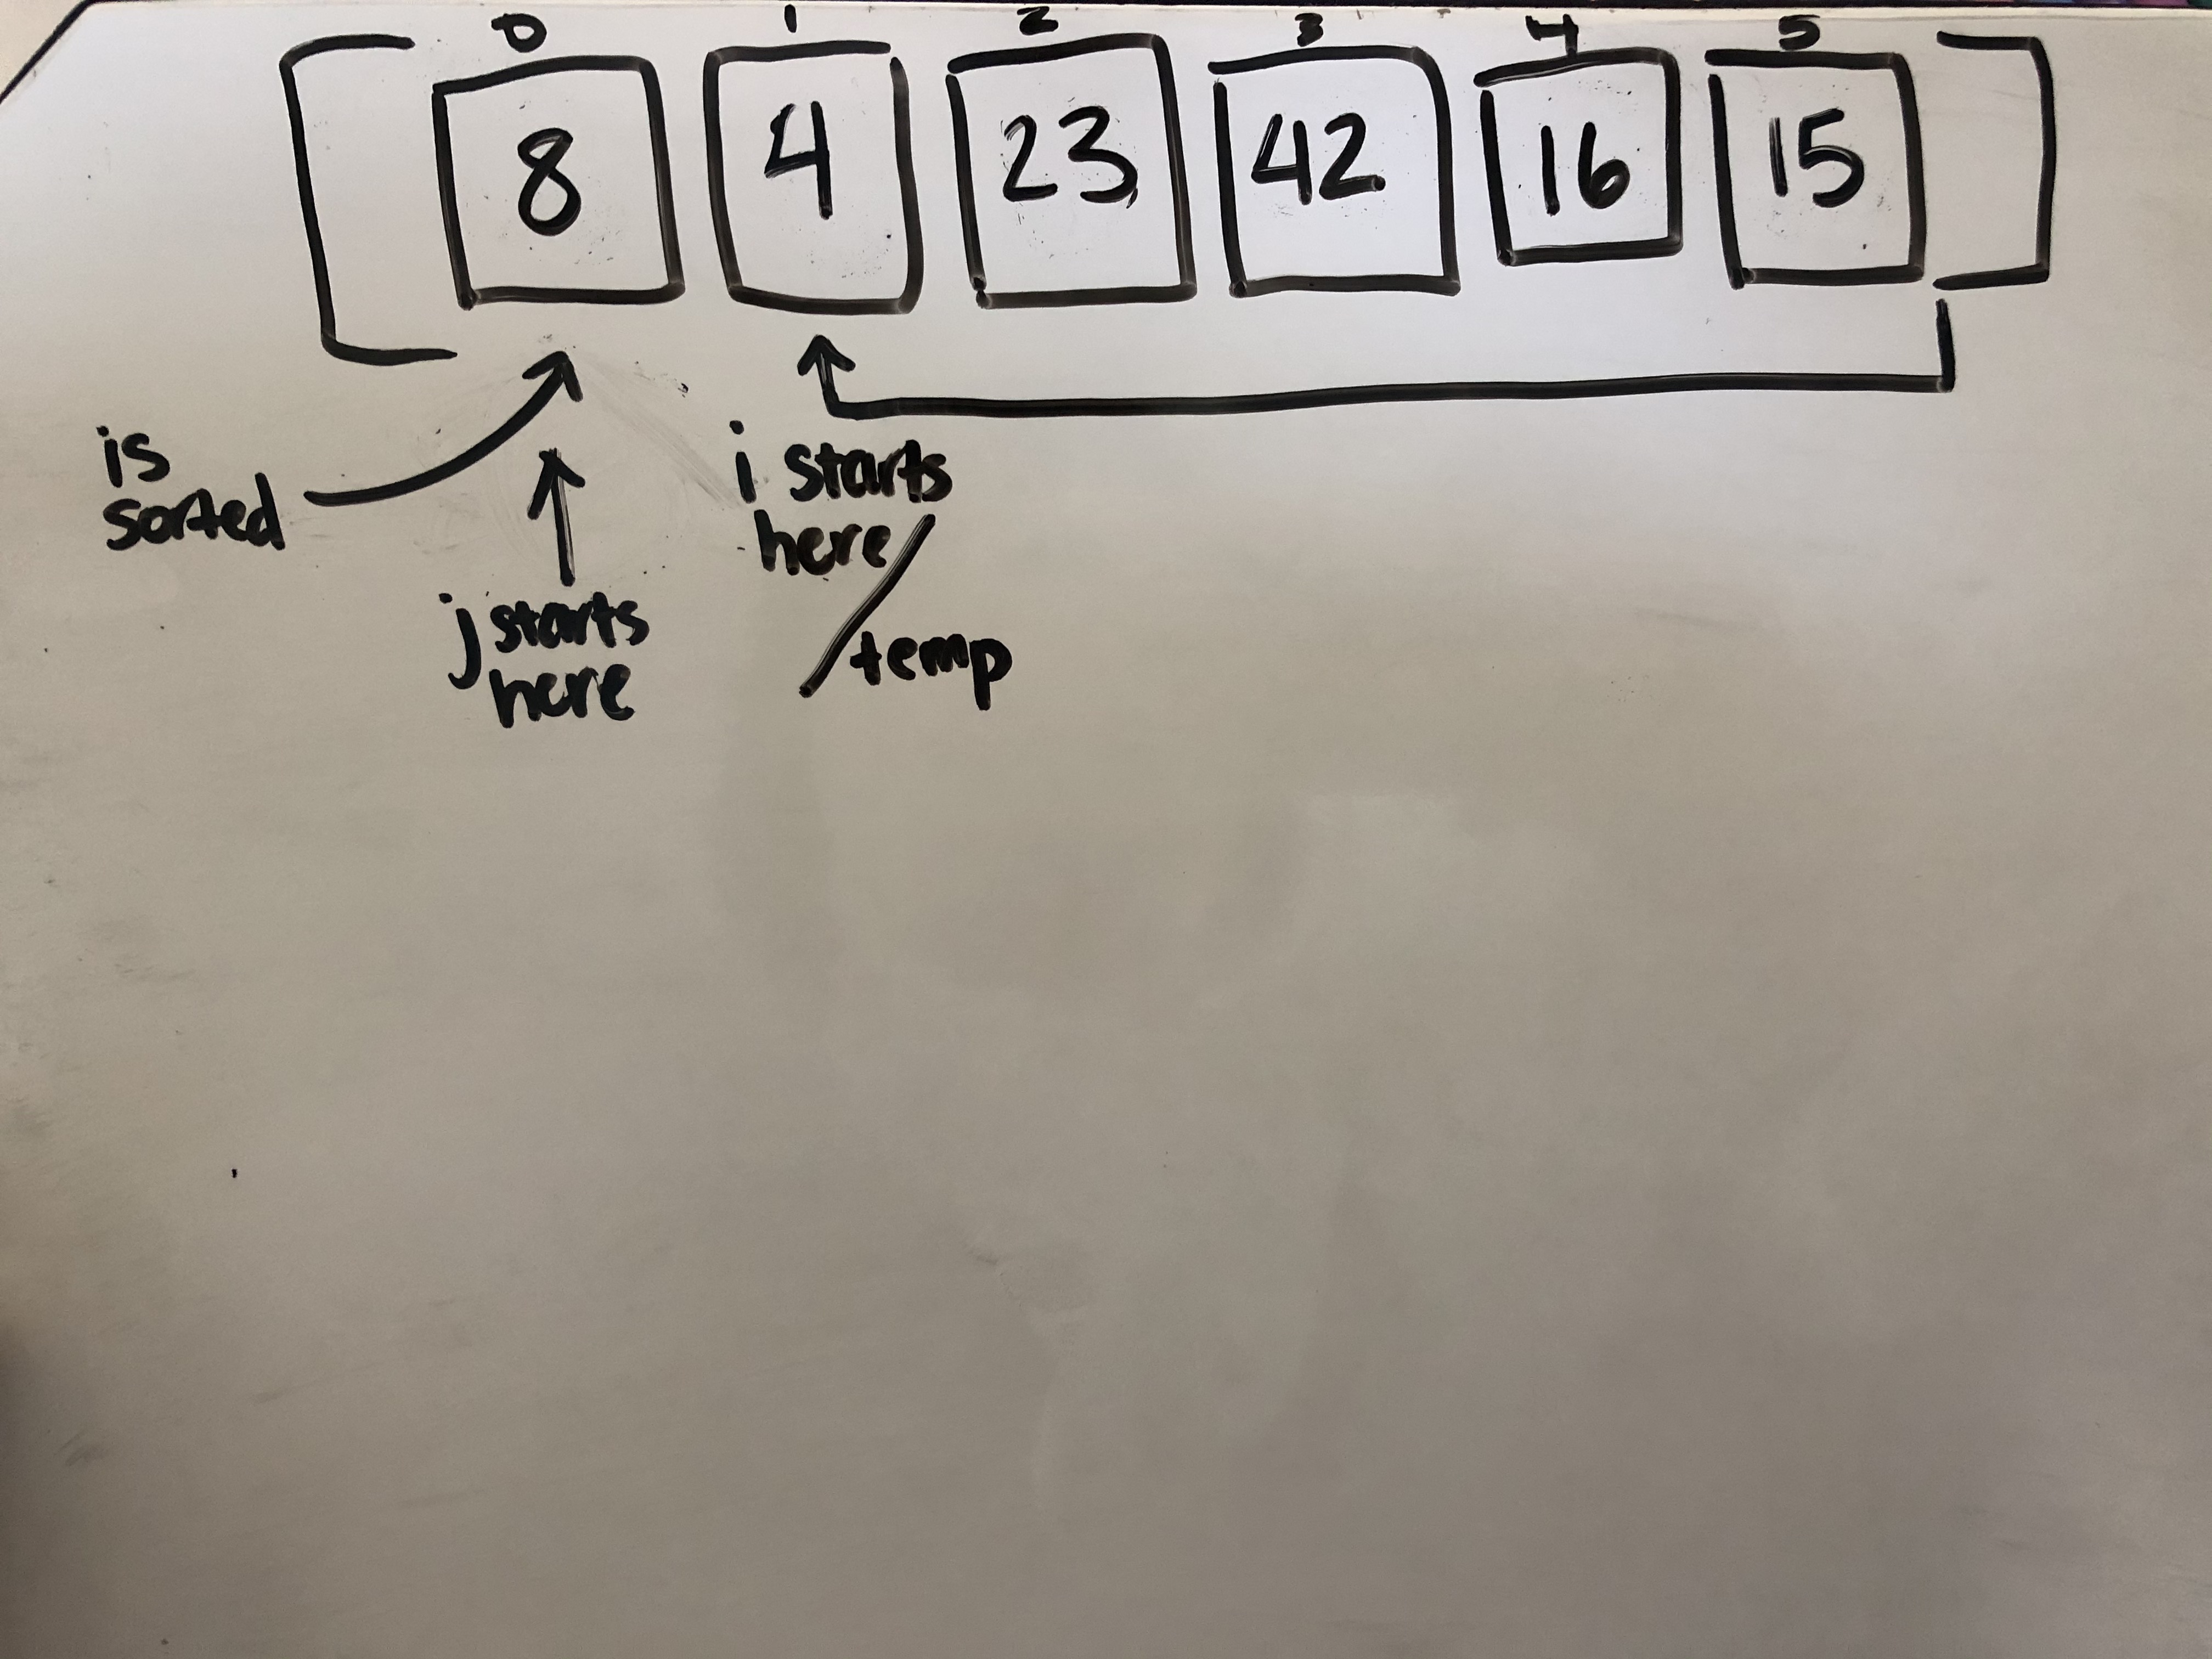 0 1 2 3 4 5
8 4 23 42 16 15
is
sorted
j starts
here
i starts
here /
temp